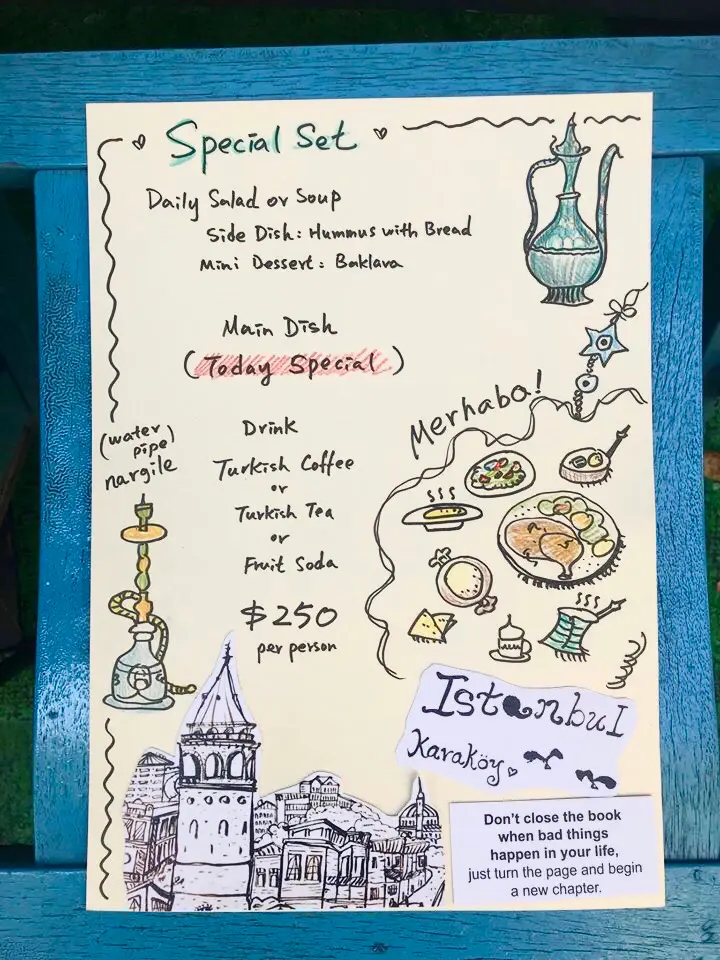 Special Set
Daily Salad or Soup
Side Dish: Hummus with Bread
Mini Dessert: Baklava
Main Dish
(Today Special)
Drink
Turkish Coffee
or
Turkish Tea
or
Fruit Soda
$250
per person
(water
pipe)
nargile
Merhaba!
Istanbul
Karaköy
Don't close the book
when bad things
happen in your life,
just turn the page and begin
a new chapter.